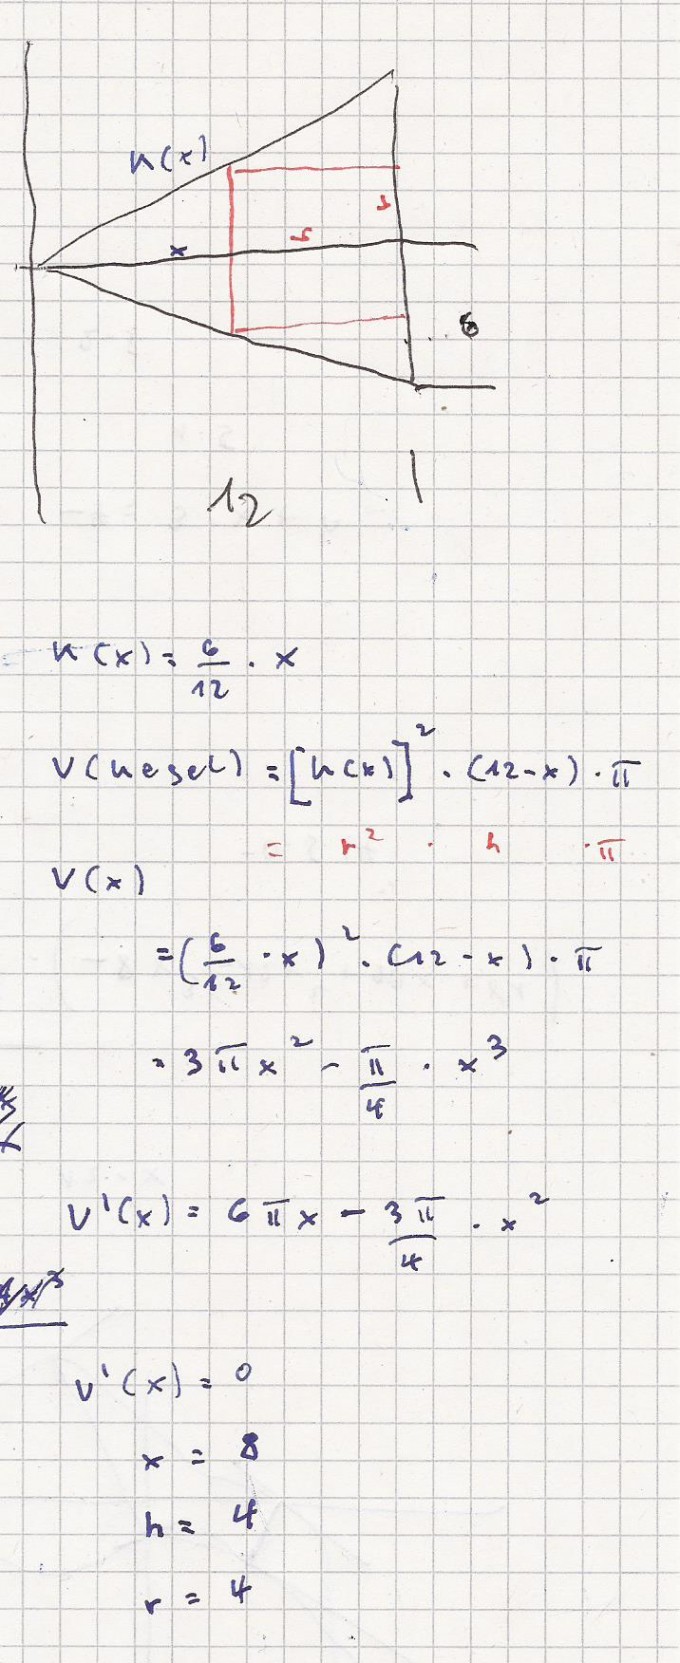 k(x)
r
h
x
6
12
k(x) = 6/12 · x
V(kegel) = [k(x)]² · (12-x) · π
= r² · h · π
V(x)
= (6/12 · x)² · (12 - x) · π
= 3πx² - π/4 · x³
V'(x) = 6πx - 3π/4 · x²
V'(x) = 0
x = 8
h = 4
r = 4